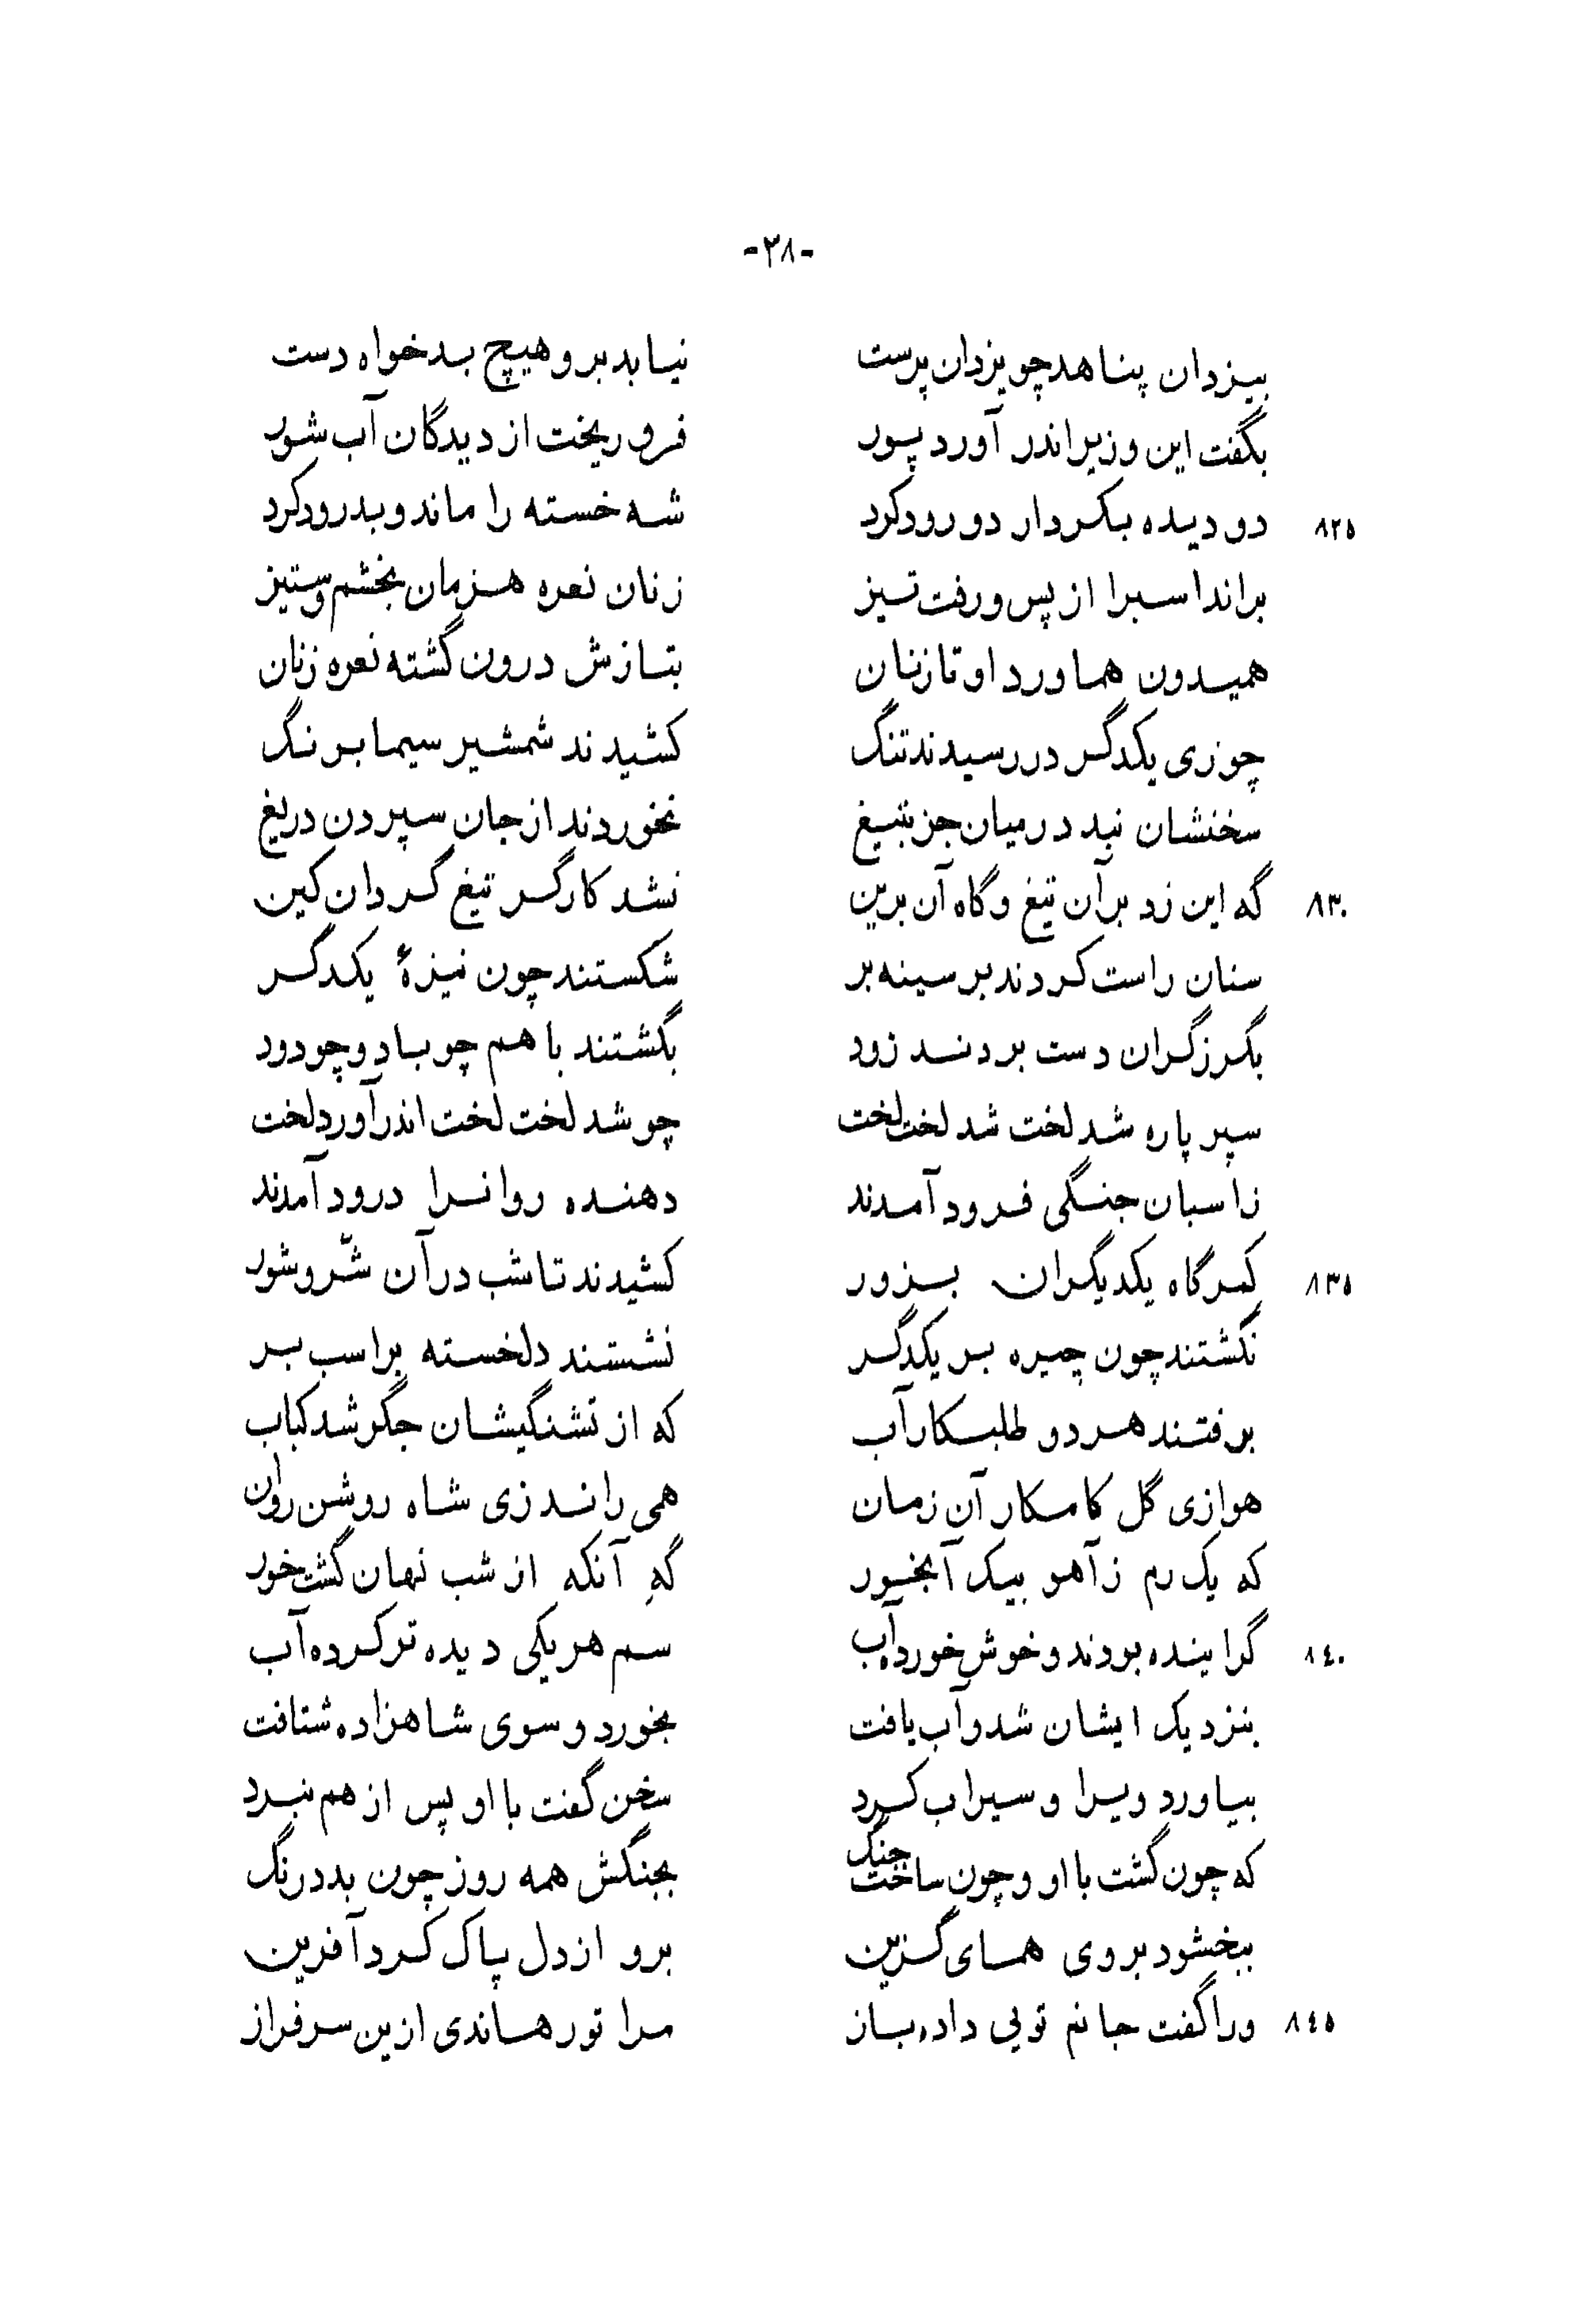 -۳۸-
بیزدان پناهد چو یزدان پرست نیابد برو هیچ بدخواه دست
بگفت این وزیر اندر آورد پور فرو ریخت از دیدگان آب شور
۸۲۵ دو دیده بکردار دو رود کرد شه خسته را ماند و بدرود کرد
براند اسبرا از پس و رفت تیز زنان نعره هزمان بخشم و ستیز
همیدون هماورد او تازنان بتازش درون گشته نعره زنان
چو زی یکدگر در رسیدند تنگ کشیدند شمشیر سیماب رنگ
سخنشان نبد در میان جز بتیغ نخوردند از جان سپردن دریغ
۸۳۰ گه این زد بر آن تیغ و گاه آن برین نشد کارگر تیغ گردان کین
سنان راست کردند بر سینه بر شکستند چون نیزهٔ یکدگر
بگرز گران دست بردند زود بگشتند با هم چو باد و چو دود
سپر پاره شد لخت شد لخت لخت چو شد لخت لخت اندر آورد لخت
ز اسبان جنگی فرود آمدند دهنده روانرا درود آمدند
۸۳۵ کمرگاه یکدیگران بزور کشیدند تا شب در آن شرّ و شور
نگشتند چون چیره بر یکدگر نشستند دلخسته بر اسب بر
برفتند هر دو طلبکار آب که از تشنگیشان جگر شد کباب
هوازی گل کامکار آن زمان همی راند زی شاه روشن روان
که یک رم ز آهو بیک آبخور گهِ آنکه از شب نهان گشت خور
۸۴۰ گراینده بودند و خوش خورده آب سم هر یکی دیده تر کرده آب
بنزدیک ایشان شد و آب یافت بخورد و سوی شاهزاده شتافت
بیاورد ویرا و سیراب کرد سخن گفت با او پس از هم نبرد
که چون گشت با او و چون ساخت جنگ بجنگش همه روز چون بد درنگ
ببخشود بر وی همای گزین برو از دل پاک کرد آفرین
۸۴۵ ورا گفت جانم تویی داده باز مرا تو رهاندی ازین سرفراز